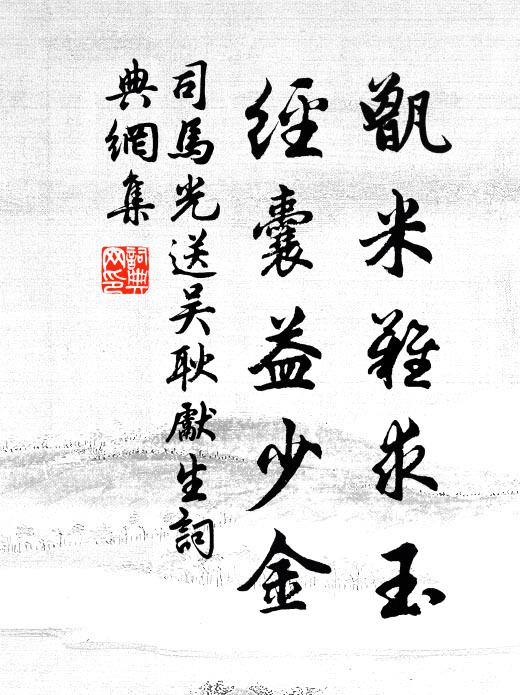 甑米難求玉
經囊益少金
司馬光送吴耿獻生詞
典網集
詞典
网印